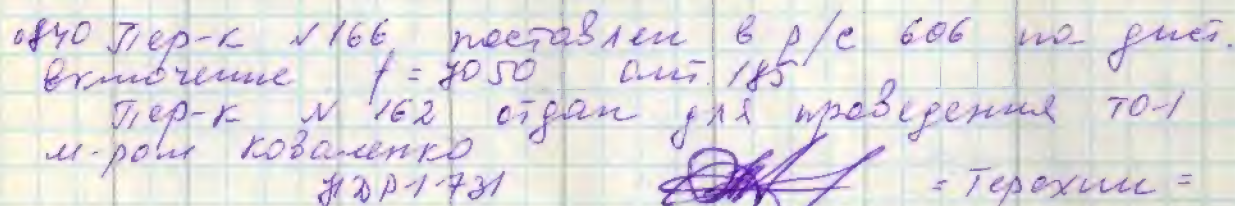 0840 Пер-к №166 поставлен в р/с 606 на дист.
включение f = 7050 ант. 185
Пер-к № 162 отдан для проведения ТО-1
м-ром Коваленко
НДР-1-731 = Терехин =